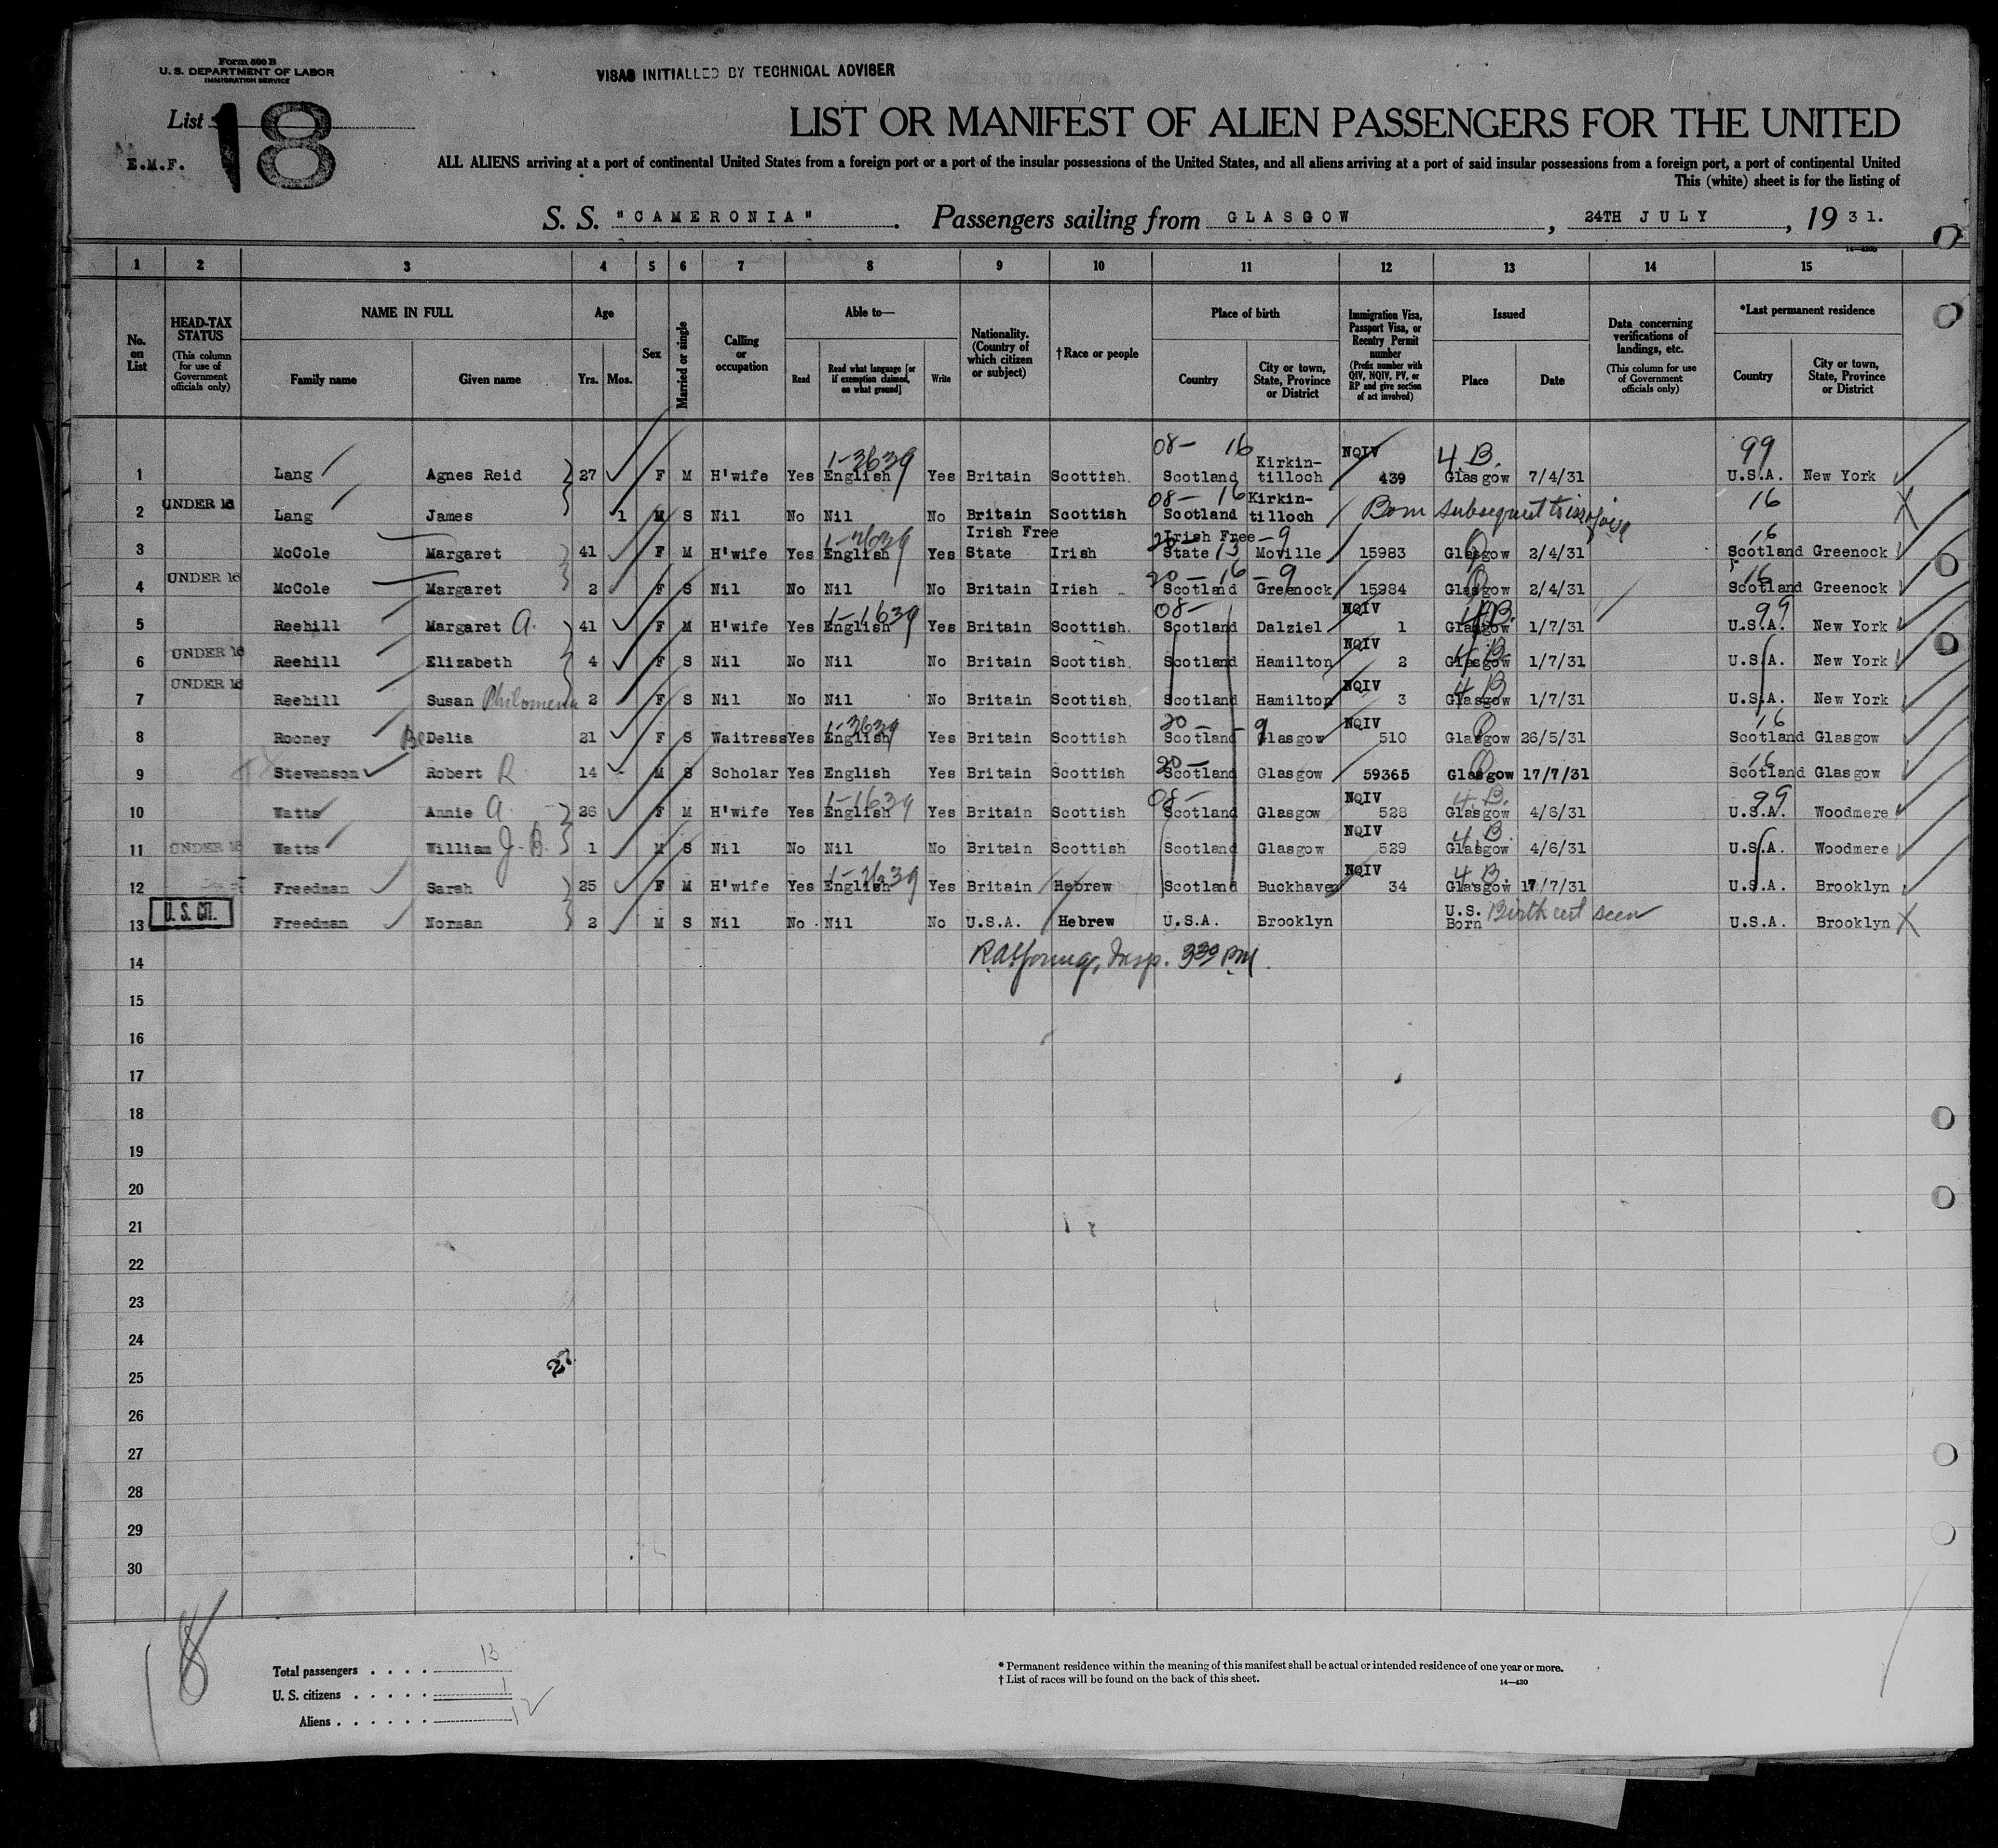 Form 500 B
U. S. DEPARTMENT OF LABOR
IMMIGRATION SERVICE
VISAS INITIALLED BY TECHNICAL ADVISER
List 18
E.M.F.
LIST OR MANIFEST OF ALIEN PASSENGERS FOR THE UNITED
ALL ALIENS arriving at a port of continental United States from a foreign port or a port of the insular possessions of the United States, and all aliens arriving at a port of said insular possessions from a foreign port, a port of continental United
This (white) sheet is for the listing of
S. S. "CAMERONIA". Passengers sailing from GLASGOW, 24TH JULY, 1931.
14—430b
1 2 3 4 5 6 7 8 9 10 11 12 13 14 15
No. on List
HEAD-TAX STATUS (This column for use of Government officials only)
NAME IN FULL
Family name Given name
Age
Yrs. Mos.
Sex
Married or single
Calling or occupation
Able to—
Read Read what language [or if exemption claimed, on what ground] Write
Nationality. (Country of which citizen or subject)
†Race or people
Place of birth
Country City or town, State, Province or District
Immigration Visa, Passport Visa, or Reentry Permit number (Prefix number with QIV, NQIV, PV, or RP and give section of act involved)
Issued
Place Date
Data concerning verifications of landings, etc. (This column for use of Government officials only)
*Last permanent residence
Country City or town, State, Province or District
08— 16 NQIV 4.B. 99
1 Lang Agnes Reid 27 F M H'wife Yes English 1-3639 Yes Britain Scottish. Scotland Kirkin-tilloch 439 Glasgow 7/4/31 U.S.A. New York
08— 16 16
2 UNDER 16 Lang James 1 M S Nil No Nil No Britain Scottish Scotland Kirkin-tilloch Born subsequent to
3 McCole Margaret 41 F M H'wife Yes English Yes Irish Free State Irish Irish Free State Moville 15983 Glasgow 2/4/31 16 Scotland Greenock
4 UNDER 16 McCole Margaret 2 F S Nil No Nil No Britain Irish 20— 16 —9 Scotland Greenock 15984 Glasgow 2/4/31 16 Scotland Greenock
5 Reehill Margaret A. 41 F M H'wife Yes English 1-1639 Yes Britain Scottish. 08— Scotland Dalziel NQIV 1 Glasgow 4B. 1/7/31 99 U.S.A. New York
6 UNDER 16 Reehill Elizabeth 4 F S Nil No Nil No Britain Scottish. Scotland Hamilton NQIV 2 Glasgow 4B 1/7/31 U.S.A. New York
7 UNDER 16 Reehill Susan Philomena 2 F S Nil No Nil No Britain Scottish. Scotland Hamilton NQIV 3 Glasgow 4B 1/7/31 U.S.A. New York
8 Rooney Delia 21 F S Waitress Yes English 1-3639 Yes Britain Scottish 20— Scotland —9 Glasgow NQIV 510 Glasgow 26/5/31 16 Scotland Glasgow
9 Stevenson Robert R 14 - M S Scholar Yes English Yes Britain Scottish 20— Scotland Glasgow 59365 Glasgow 17/7/31 16 Scotland Glasgow
10 Watts Annie A. 26 F M H'wife Yes English 1-1639 Yes Britain Scottish 08— Scotland Glasgow NQIV 528 Glasgow 4.B. 4/6/31 99 U.S.A. Woodmere
11 UNDER 16 Watts William J.B. 1 M S Nil No Nil No Britain Scottish Scotland Glasgow NQIV 529 Glasgow 4.B. 4/6/31 U.S.A. Woodmere
12 Freedman Sarah 25 F M H'wife Yes English Yes Britain Hebrew Scotland Buckhaven NQIV 34 Glasgow 4.B. 17/7/31 U.S.A. Brooklyn
13 U.S. CIT. Freedman Norman 2 M S Nil No Nil No U.S.A. Hebrew U.S.A. Brooklyn U.S. Born Birth cert seen U.S.A. Brooklyn
14 Insp. 3 30 PM
15
16
17
18
19
20
21
22
23
24
25
26
27
28
29
30
18
Total passengers . . . . 13
U. S. citizens . . . . . 1
Aliens . . . . . . 12
* Permanent residence within the meaning of this manifest shall be actual or intended residence of one year or more.
† List of races will be found on the back of this sheet.
14—430